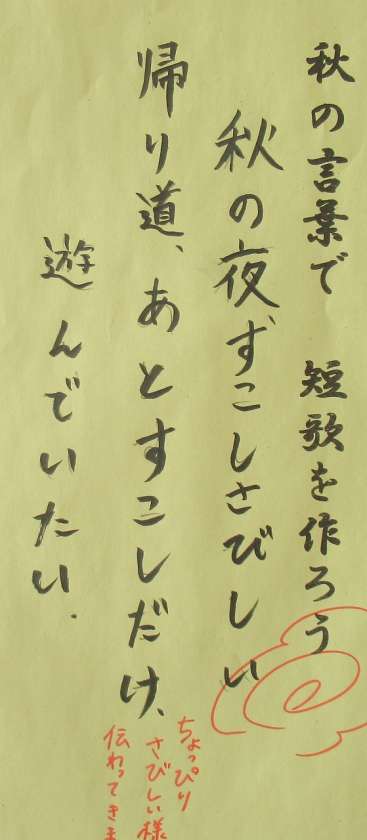 秋の言葉で 短歌を作ろう
秋の夜ずこしさびしい
帰り道、あとすこしだけ、
遊んでいたい.
ちょっぴり
さびしい様
伝わってきま